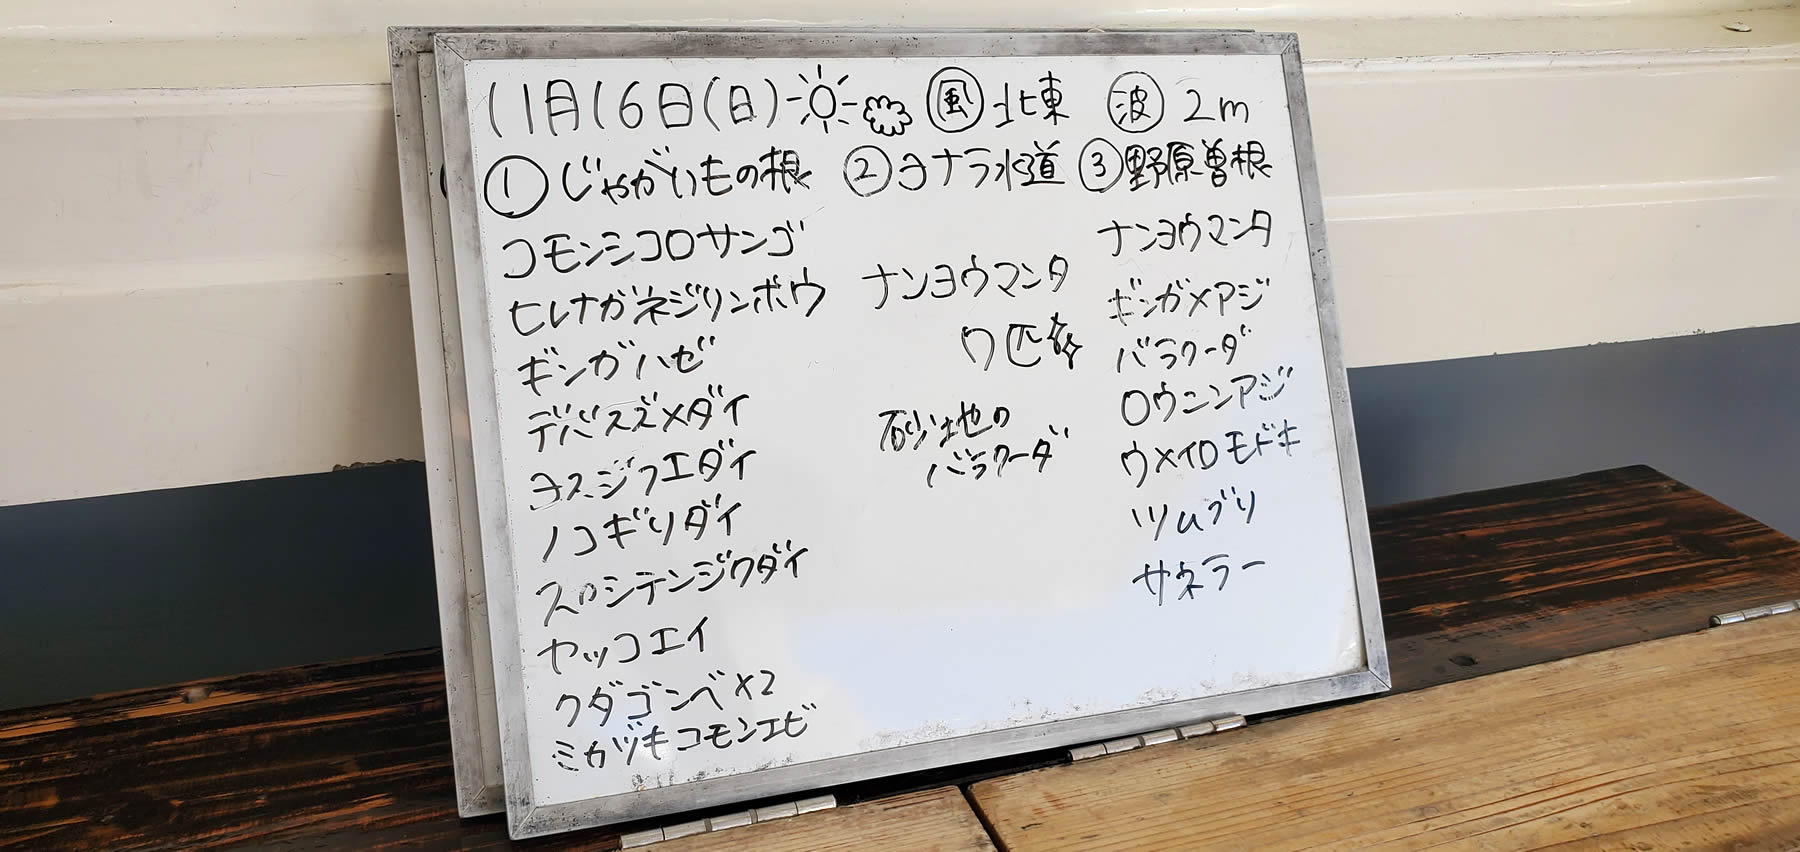 11月16日(日) 風 北東 波 2m
① じゃがいもの根
コモンシコロサンゴ
ヒレナガネジリンボウ
ギンガハゼ
デバスズメダイ
ヨスジフエダイ
ノコギリダイ
スカシテンジクダイ
ヤッコエイ
クダゴンベ×2
ミカヅキコモンエビ
② ヨナラ水道
ナンヨウマンタ
7匹
砂地の
バラクーダ
③ 野原曽根
ナンヨウマンタ
ギンガメアジ
バラクーダ
ロウニンアジ
ウメイロモドキ
ツムブリ
サネラー